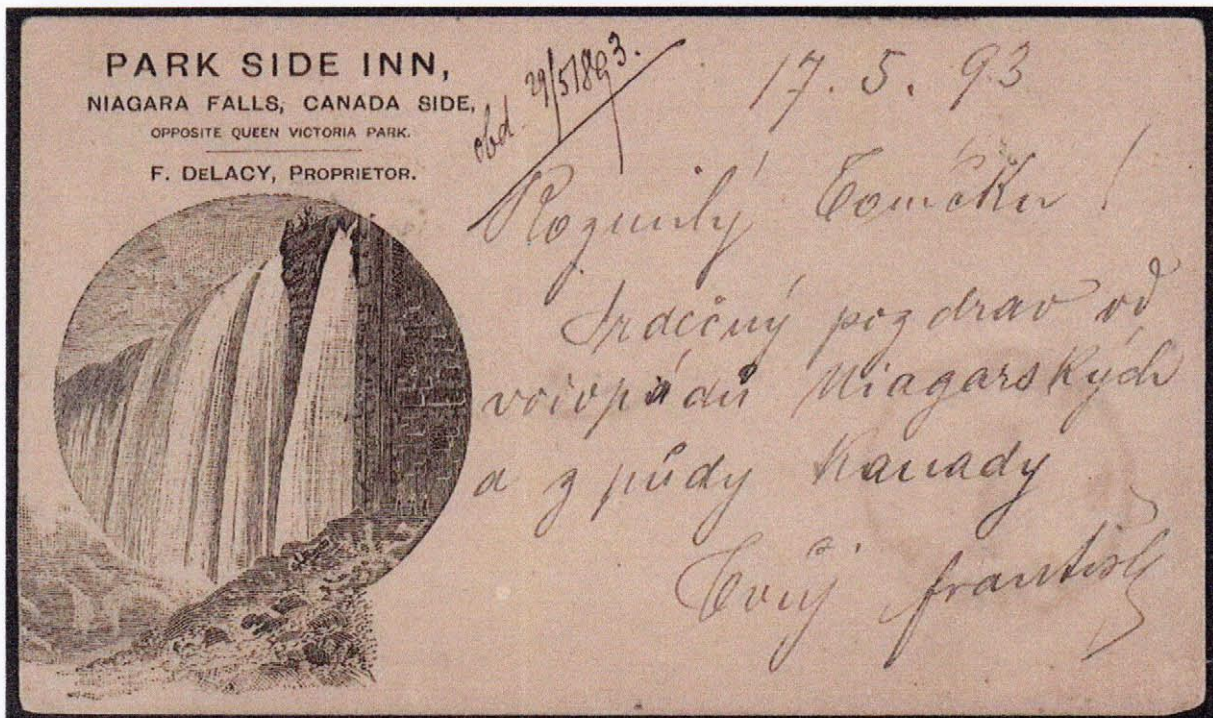 PARK SIDE INN,
NIAGARA FALLS, CANADA SIDE,
OPPOSITE QUEEN VICTORIA PARK.
F. DeLACY, PROPRIETOR.
obd. 29/5 1893.
17. 5. 93
Rozmilý Tomíčku!
Srdečný pozdrav od
vodopádů Niagarských
a z půdy Kanady
Tvůj František